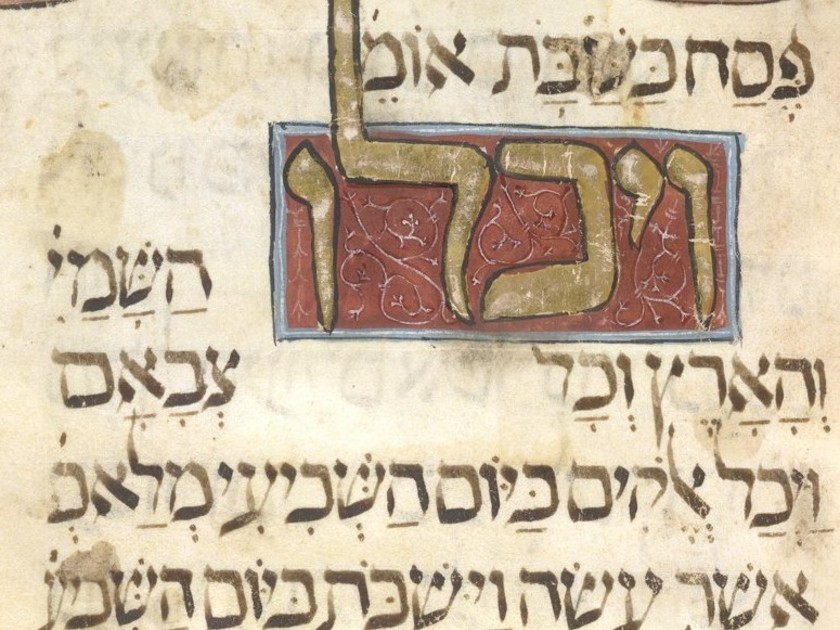 פֶּסַח בַּשַּׁבָּת אוֹמֵ
ויכלו
הַשָּׁמַיִ
וְהָאָרֶץ וְכָל צְבָאָם
וַיְכַל אֱלֹקִים בַּיּוֹם הַשְּׁבִיעִי מְלַאכְ
אשר עשה וישבת ביום השביע